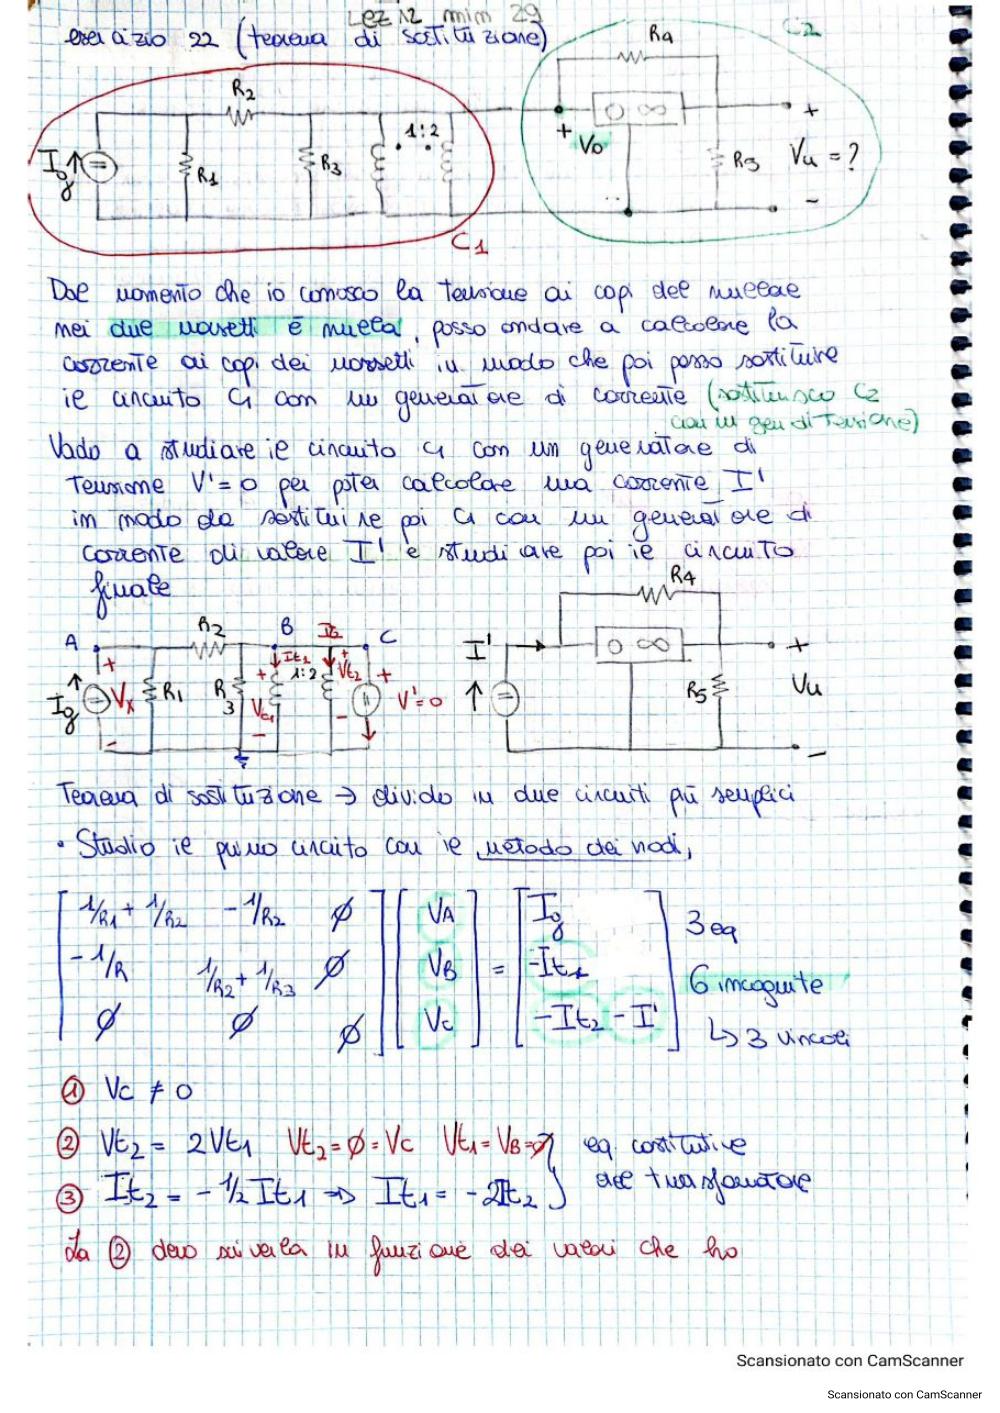 Lez 12 min 29
esercizio 22 (teorema di sostituzione)
R4
C2
R2
1:2
0 ∞
+
+
V0
Ig
R1
R3
R5
Vu = ?
-
C1
Dal momento che io conosco la tensione ai capi del nullore
nei due morsetti è nulla, posso andare a calcolare la
corrente ai capi dei morsetti in modo che poi posso sostituire
il circuito C1 con un generatore di corrente (sostituisco C2
con un gen di Tensione)
Vado a studiare il circuito C1 con un generatore di
Tensione V'=0 per poter calcolare una corrente I'
in modo da sostituire poi C1 con un generatore di
corrente di valore I' e studiare poi il circuito
finale
R4
A R2 B It2 C
I' 0 ∞ +
+ It1 + +
Ig Vx R1 R3 1:2 Vt2 V'=0 R5 Vu
- - - -
Teorema di sostituzione → divido in due circuiti più semplici
• Studio il primo circuito con il metodo dei nodi,
1/R1 + 1/R2 -1/R2 ∅ VA Ig 3 eq
-1/R 1/R2 + 1/R3 ∅ VB = -It1 6 incognite
∅ ∅ ∅ Vc -It2 - I' ↳ 3 vincoli
① Vc ≠ 0
② Vt2 = 2Vt1 Vt2 = ∅ = Vc Vt1 = VB = ∅ eq. costitutive
③ It2 = -1/2 It1 ⇒ It1 = -2It2 del trasformatore
La ② devo scriverla in funzione dei valori che ho
Scansionato con CamScanner
Scansionato con CamScanner